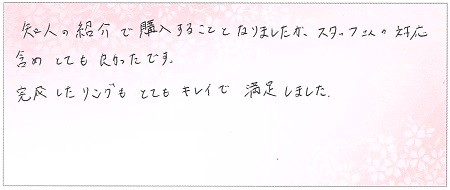 知人の紹介で購入することとなりましたが、スタッフさんの対応
含めとても良かったです。
完成したリングもとてもキレイで満足しました。